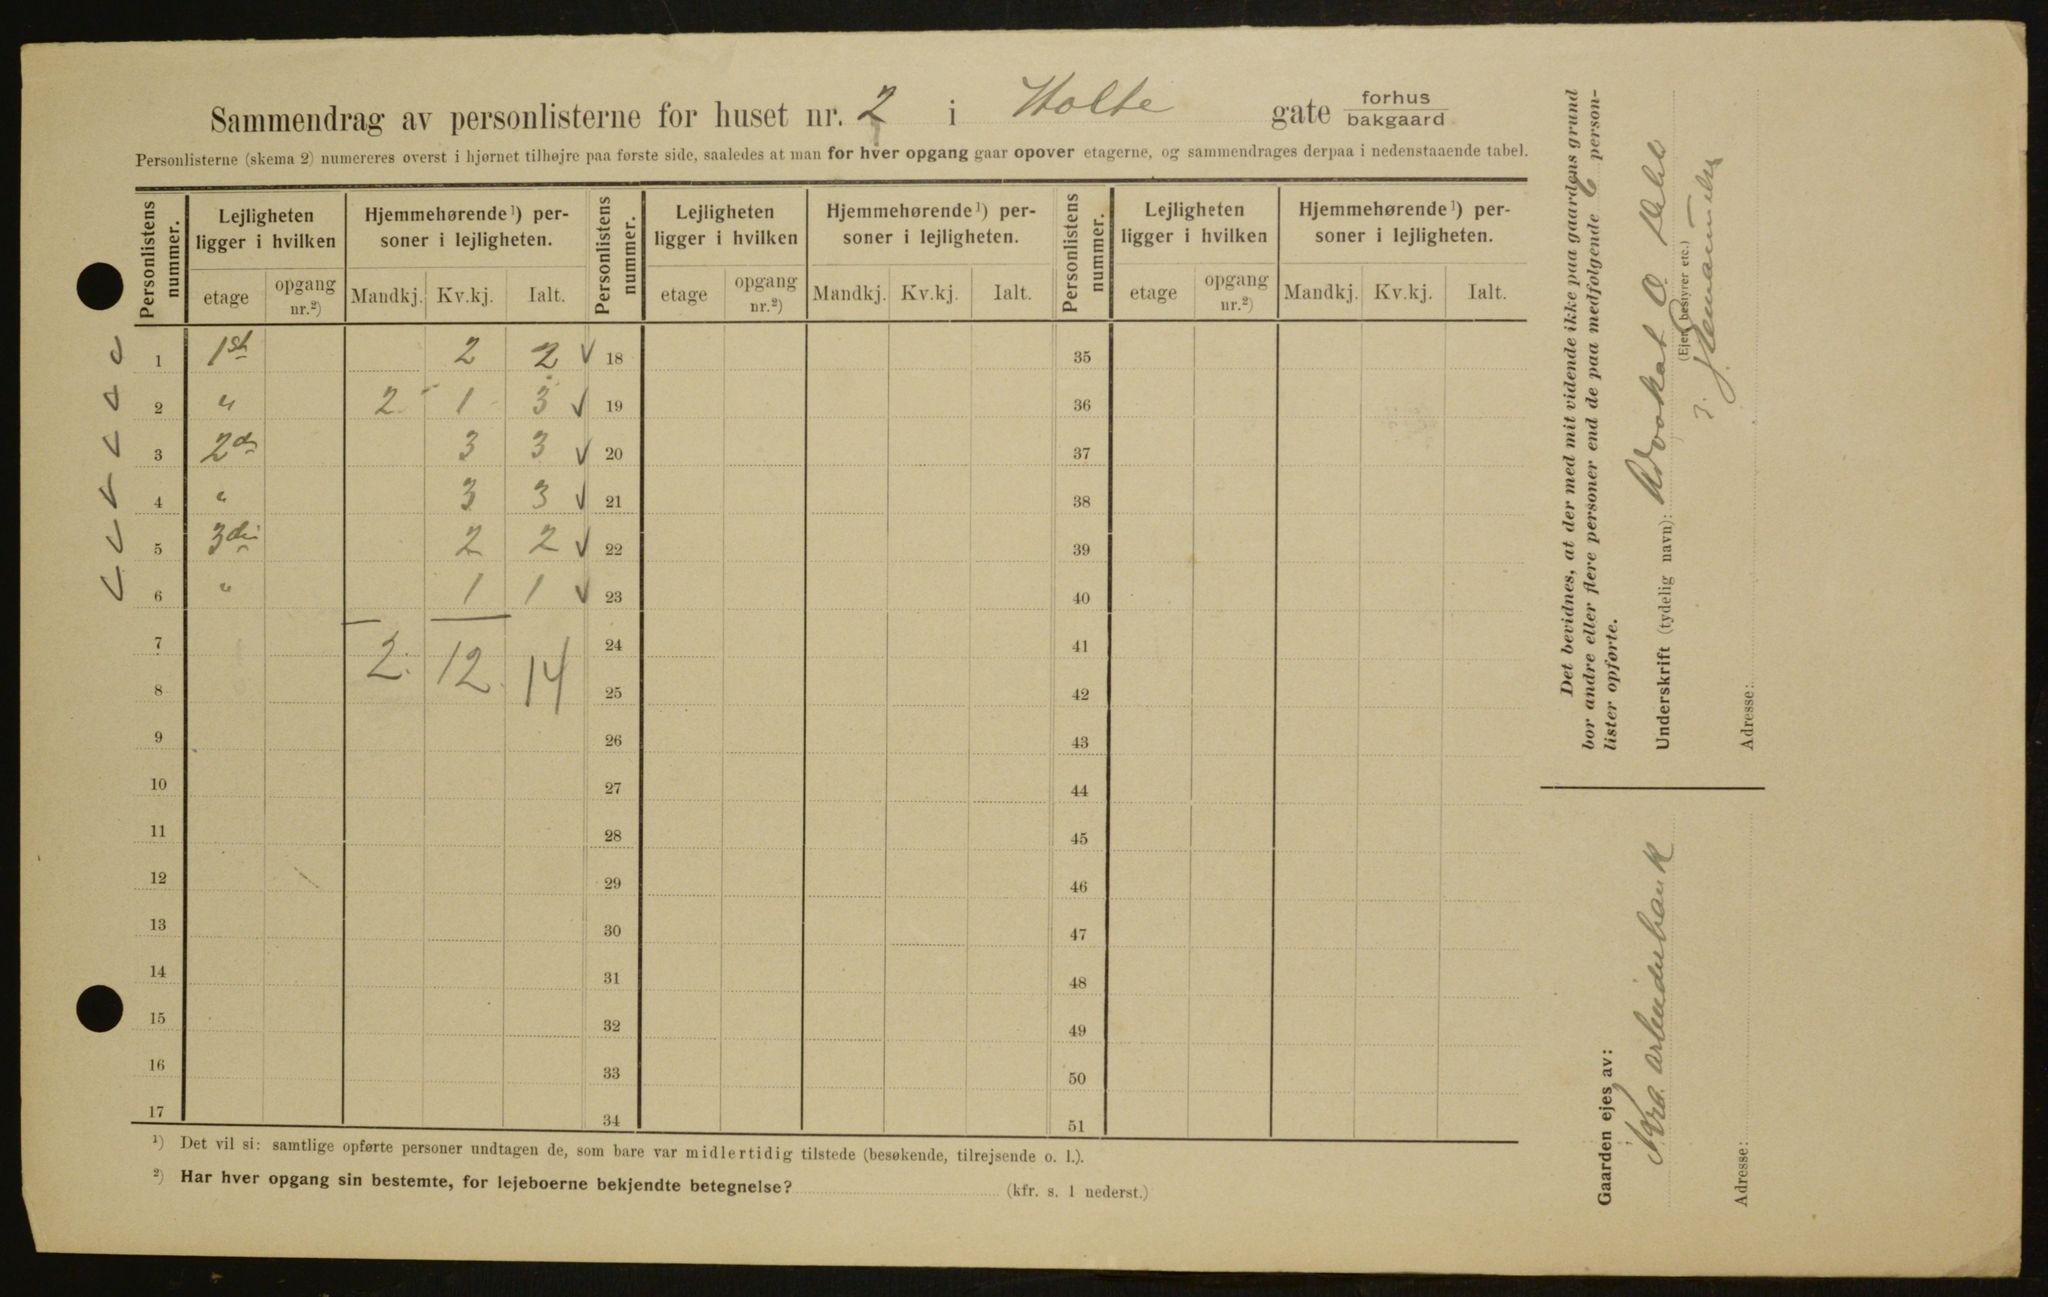 Sammendrag av personlisterne for huset nr. 2 i Holte gate forhus bakgaard
Personlisterne (skema 2) numereres øverst i hjørnet tilhøjre paa første side, saaledes at man for hver opgang gaar opover etagerne, og sammendrages derpaa i nedenstaaende tabel.
Personlistens nummer. Lejligheten ligger i hvilken Hjemmehørende¹) personer i lejligheten. Personlistens nummer. Lejligheten ligger i hvilken Hjemmehørende¹) personer i lejligheten. Personlistens nummer. Lejligheten ligger i hvilken Hjemmehørende¹) personer i lejligheten.
etage opgang nr.²) Mandkj. Kv.kj. Ialt. etage opgang nr.²) Mandkj. Kv.kj. Ialt. etage opgang nr.²) Mandkj. Kv.kj. Ialt.
1 1ste 2 2 18 35
2 " 2 1 3 19 36
3 2den 3 3 20 37
4 " 3 3 21 38
5 3die 2 2 22 39
6 " 1 1 23 40
7 2 12 14 24 41
8 25 42
9 26 43
10 27 44
11 28 45
12 29 46
13 30 47
14 31 48
15 32 49
16 33 50
17 34 51
¹) Det vil si: samtlige opførte personer undtagen de, som bare var midlertidig tilstede (besøkende, tilrejsende o. l.).
²) Har hver opgang sin bestemte, for lejeboerne bekjendte betegnelse? (kfr. s. 1 nederst.)
Det bevidnes, at der med mit vidende ikke paa gaardens grund
bor andre eller flere personer end de paa medfølgende 6 person-
lister opførte.
Underskrift (tydelig navn): Advokat O.
(Ejer, bestyrer etc.)
Adresse:
Gaarden ejes av:
Kra. Arbeiderbank
Adresse: